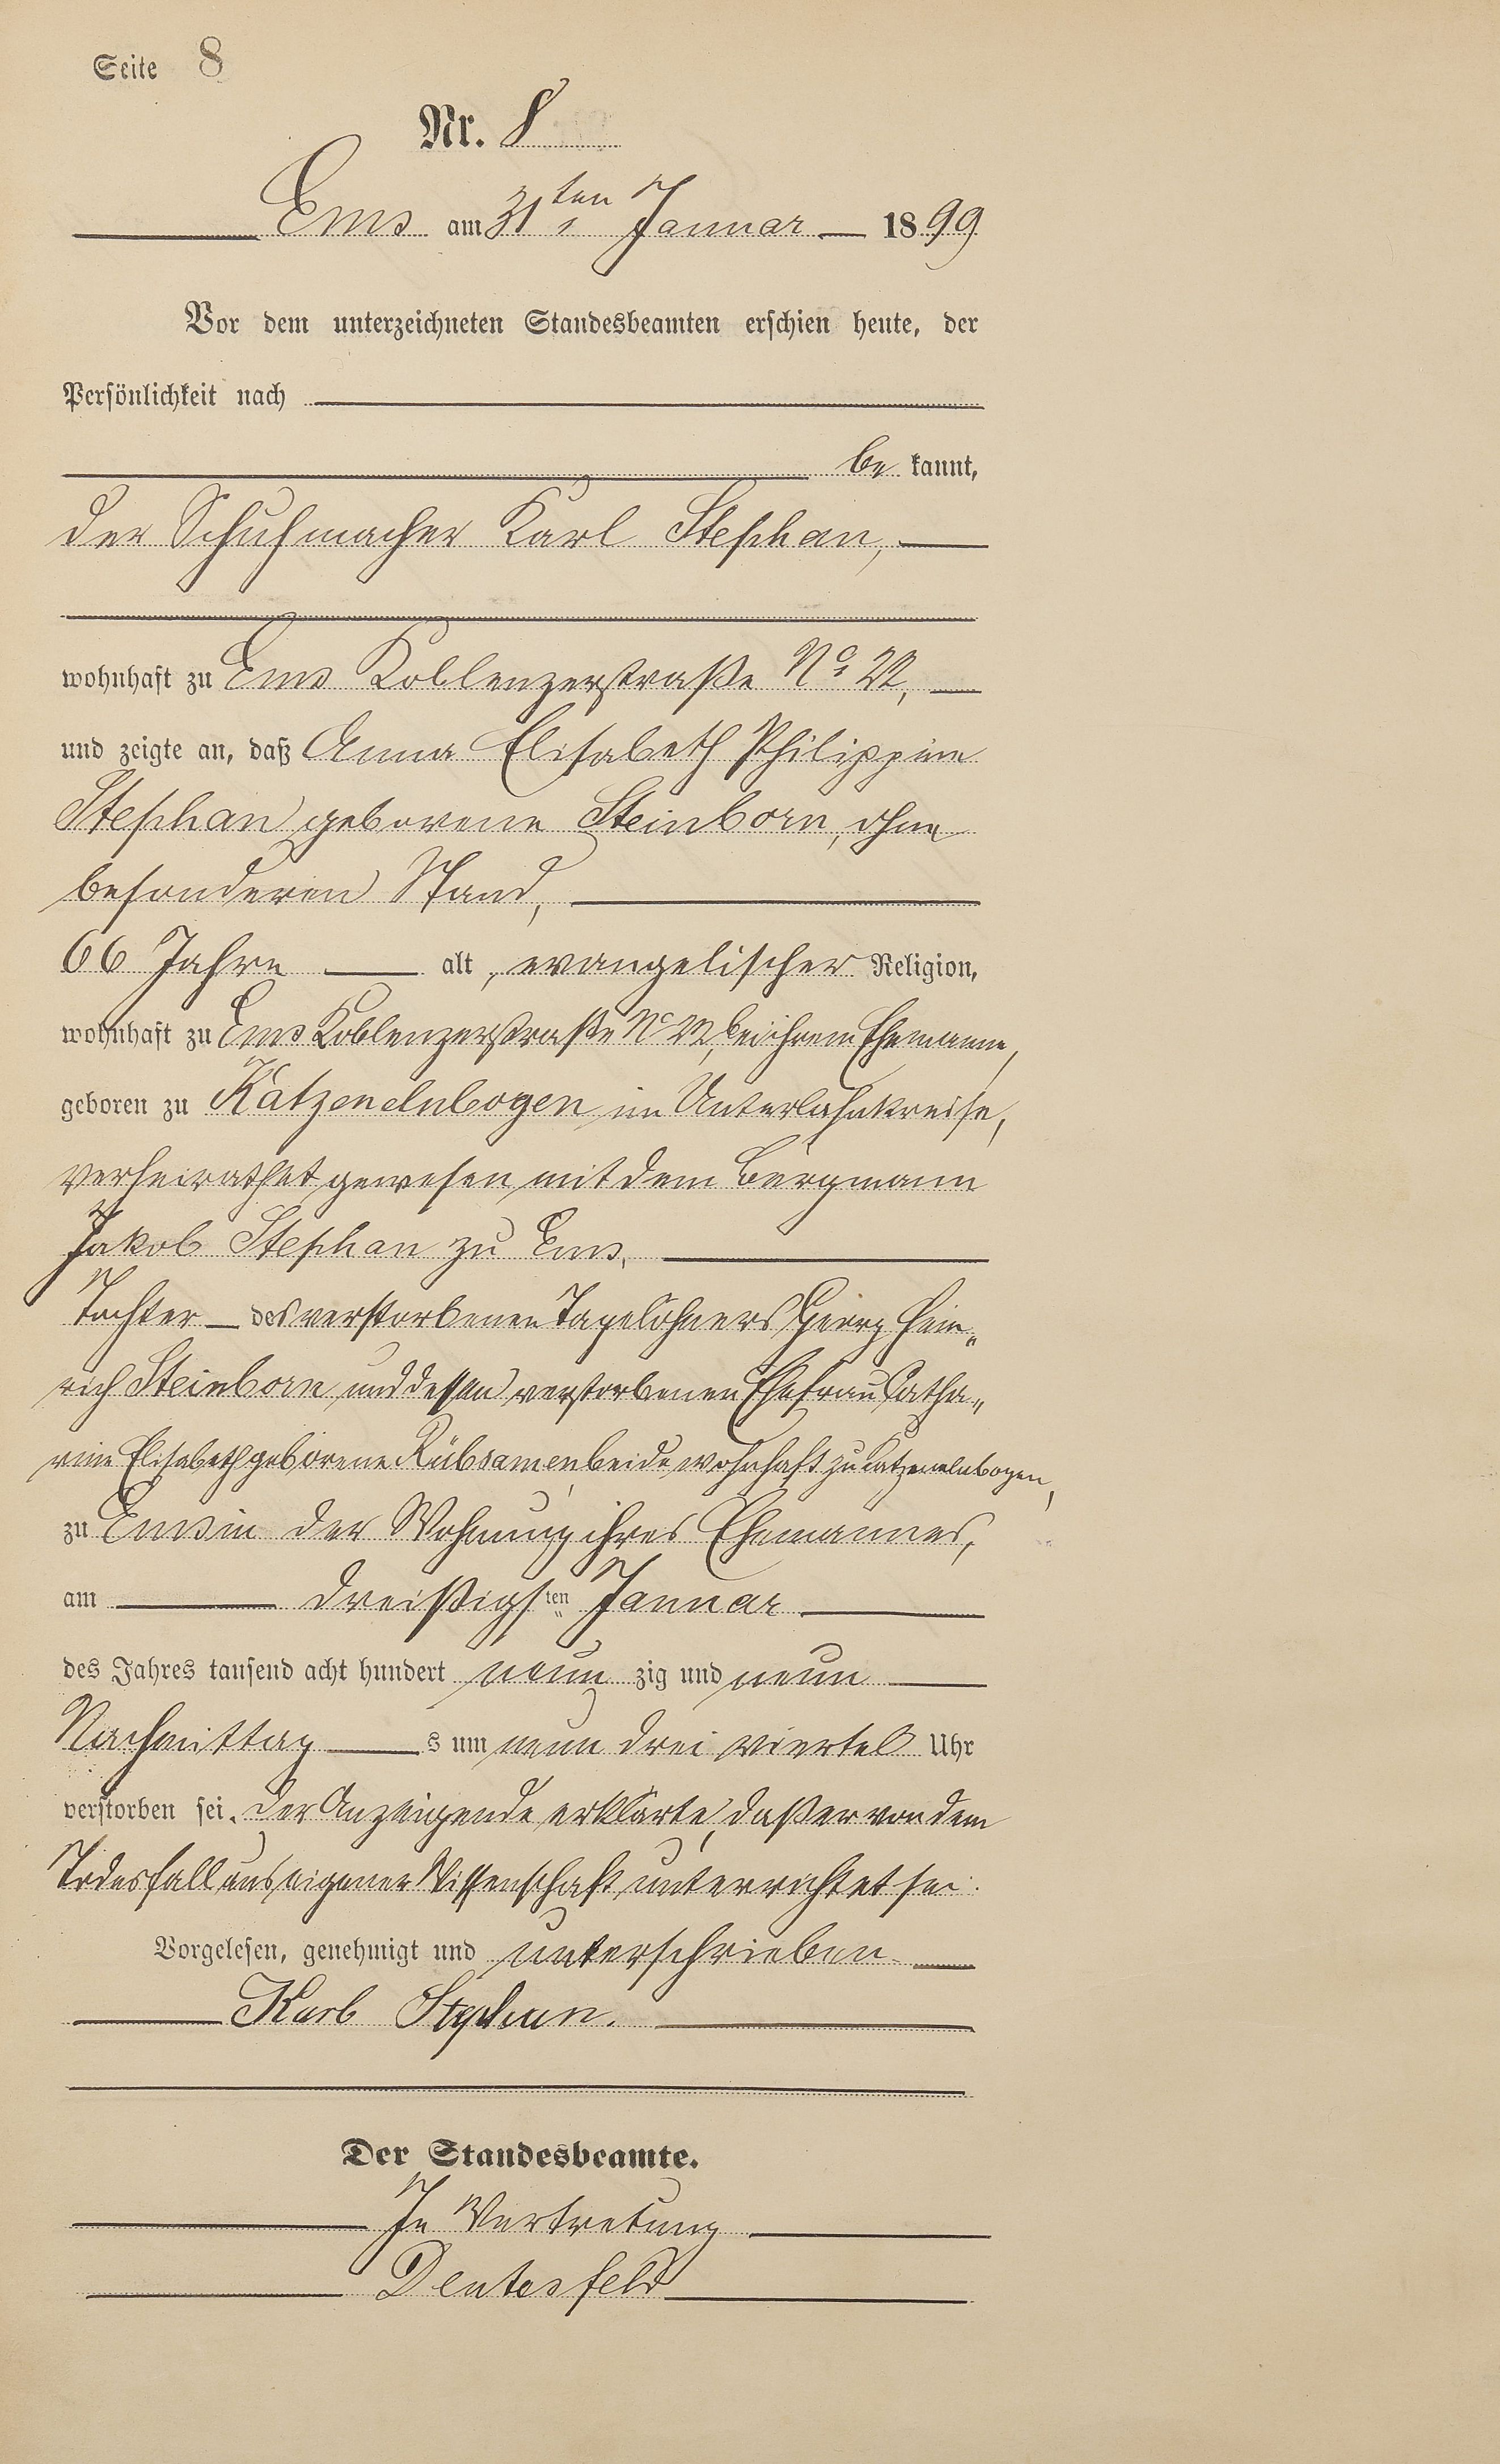 Seite 8
Nr. 8
Ems am 31ten Januar 1899
Vor dem unterzeichneten Standesbeamten erschien heute, der
Persönlichkeit nach
be kannt,
der Schuhmacher Karl Stephan,
wohnhaft zu Ems Koblenzerstraße No
und zeigte an, daß Anna Elisabeth Philippine
Stephan geborene Steinborn, ohne
besonderen Stand,
66 Jahre alt, evangelischer Religion,
wohnhaft zu Ems Koblenzerstraße No bei ihrem Ehemanne,
geboren zu Katzenelnbogen im Unterlahnkreise,
verheirathet gewesen mit dem Bergmann
Jakob Stephan zu Ems,
Tochter des verstorbenen Tagelöhners Georg Hein„
rich Steinborn und dessen verstorbenen Ehefrau Catha„
rine Elisabeth geborene Rübsamen, beide wohnhaft zu Katzenelnbogen,
zu Ems in der Wohnung ihres Ehemannes,
am dreißigsten Januar
des Jahres tausend acht hundert neun zig und neun
Nachmittag s um neun drei viertel Uhr
verstorben sei. Der Anzeigende erklärte, daß er von dem
Todesfall aus eigener Wissenschaft unterrichtet sei.
Vorgelesen, genehmigt und unterschrieben
Karl Stephan.
Der Standesbeamte.
In Vertretung